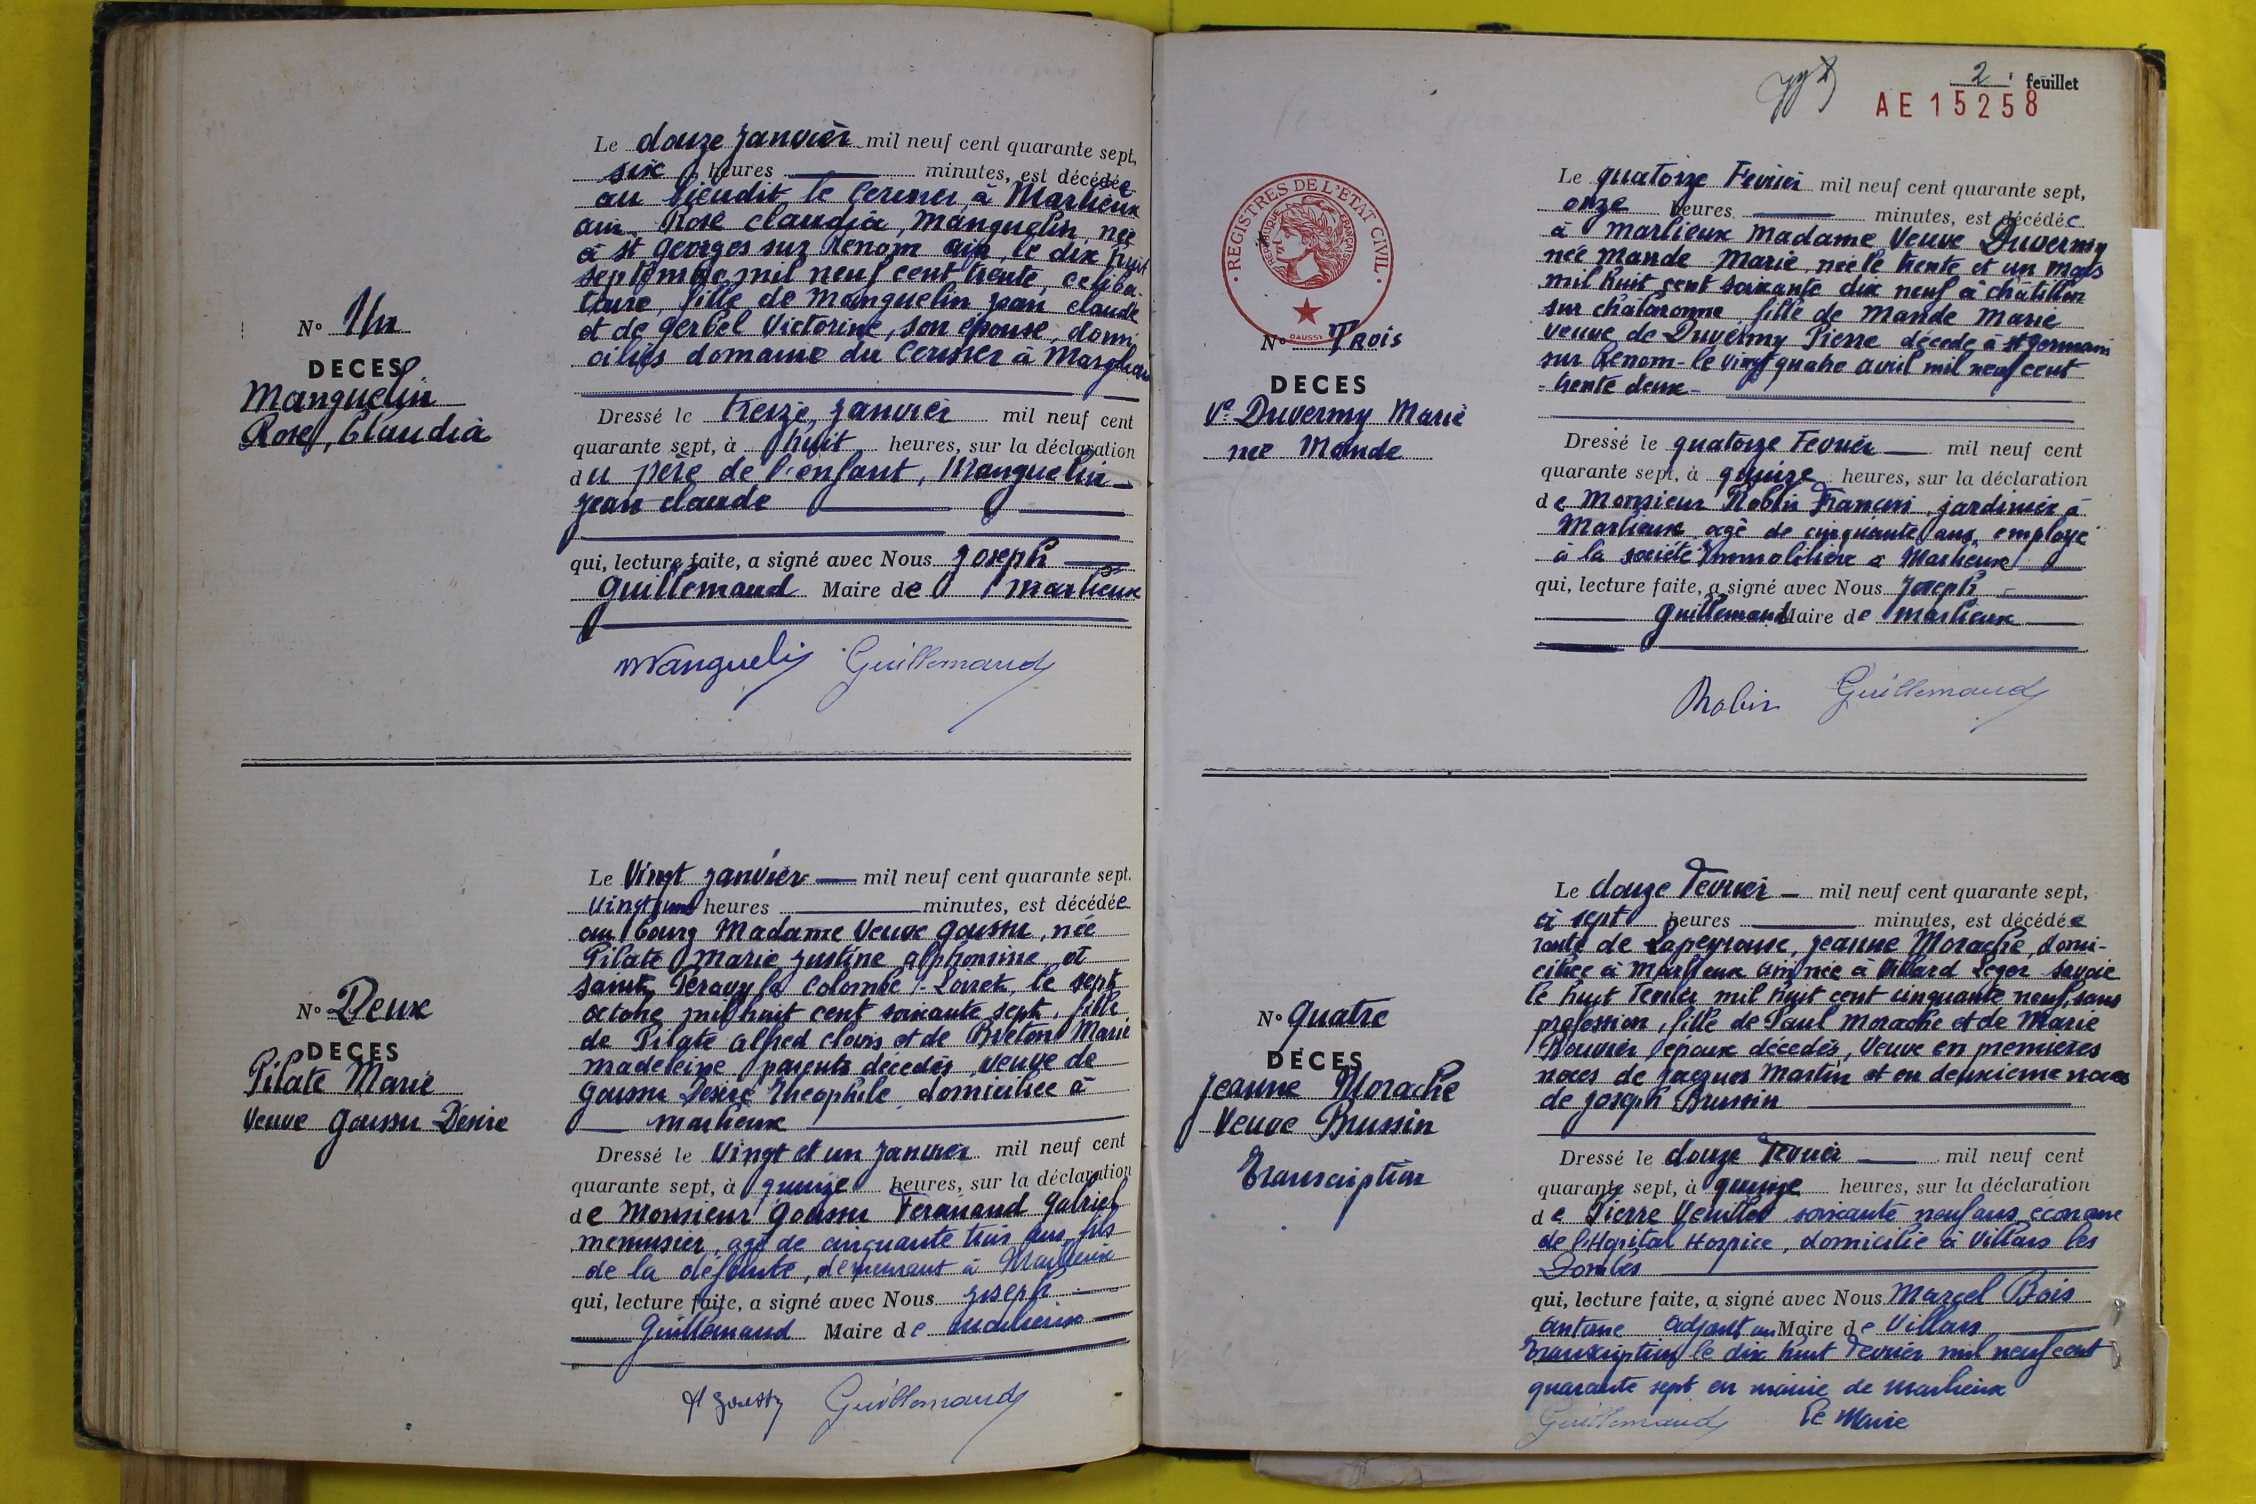 Le douze janvier mil neuf cent quarante sept,
six heures minutes, est décédée
au lieudit le Cerisier à Marlieux
ain Rose Claudia, Manguelin, née
à St Georges sur Renom ain, le dix huit
septembre mil neuf cent trente, céliba-
taire, fille de Manguelin jean claude
et de Gerbel Victorine, son épouse, domi
ciliés domaine du Cerisier à Marlieux
N° Un
DECES
Manguelin
Rose, Claudia
Dressé le treize janvier mil neuf cent
quarante sept, à huit heures, sur la déclaration
du père de l'enfant, Manguelin
jean claude
qui, lecture faite, a signé avec Nous joseph
Guillemaud Maire de Marlieux
Manguelin Guillemaud
Le Vingt janvier mil neuf cent quarante sept.
vingt une heures minutes, est décédée
au bourg Madame Veuve Goussu, née
Pilate Marie justine alphonsine, à
saint Peravy la Colombe Loiret, le sept
octobre mil huit cent soixante sept, fille
de Pilate alfred clovis et de Breton Marie
madeleine parents décédés, veuve de
Goussu Désiré Théophile domiciliée à
marlieux
N° Deux
DECES
Pilate Marie
Veuve Goussu Désiré
Dressé le Vingt et un janvier mil neuf cent
quarante sept, à quinze heures, sur la déclaration
de Monsieur Goussu Fernand Gabriel
menuisier, agé de cinquante trois ans, fils
de la défunte, demeurant à Marlieux
qui, lecture faite, a signé avec Nous joseph
Guillemaud Maire de marlieux
Goussu Guillemaud
2 feuillet
AE15258
REGISTRES DE L'ETAT CIVIL
REPUBLIQUE FRANÇAISE
DAUSSY
Le quatorze Fevrier mil neuf cent quarante sept,
onze heures minutes, est décédée
à marlieux Madame Veuve Duvermy
née Mande Marie, née le trente et un Mars
mil huit cent soixante dix neuf à châtillon
sur chalaronne fille de Mande Marie
veuve de Duvermy Pierre décédé à St germain
sur Renom le vingt quatre avril mil neuf cent
trente deux
N° Trois
DECES
Ve Duvermy Marie
née Mande
Dressé le quatorze Fevrier mil neuf cent
quarante sept, à quinze heures, sur la déclaration
de Monsieur Robin Francois, jardinier à
Marlieux agé de cinquante ans employé
à la société Immobilière à Marlieux
qui, lecture faite, a signé avec Nous Joseph
Guillemaud Maire de Marlieux
Robin Guillemaud
Le douze Fevrier mil neuf cent quarante sept,
à sept heures minutes, est décédée
route de Lapeyrouse, jeanne Morache, domi-
ciliée à Marlieux ain née à Villard Léger Savoie
le huit Fevrier mil huit cent cinquante neuf, sans
profession, fille de Paul Morache et de Marie
Bouvier époux décédés, Veuve en premières
noces de jacques Martin et en deuxieme noces
de joseph Brussin
N° Quatre
DECES
Jeanne Morache
Veuve Brussin
Transcription
Dressé le douze Fevrier mil neuf cent
quarante sept, à quinze heures, sur la déclaration
de Pierre Veuillet soixante neuf ans, économe
de l'Hopital Hospice, domicilié à Villars les
Dombes
qui, lecture faite, a signé avec Nous Marcel Bois
antoine adjoint au Maire de Villars
Transcription le dix huit Fevrier mil neuf cent
quarante sept en mairie de Marlieux
Guillemaud Le Maire